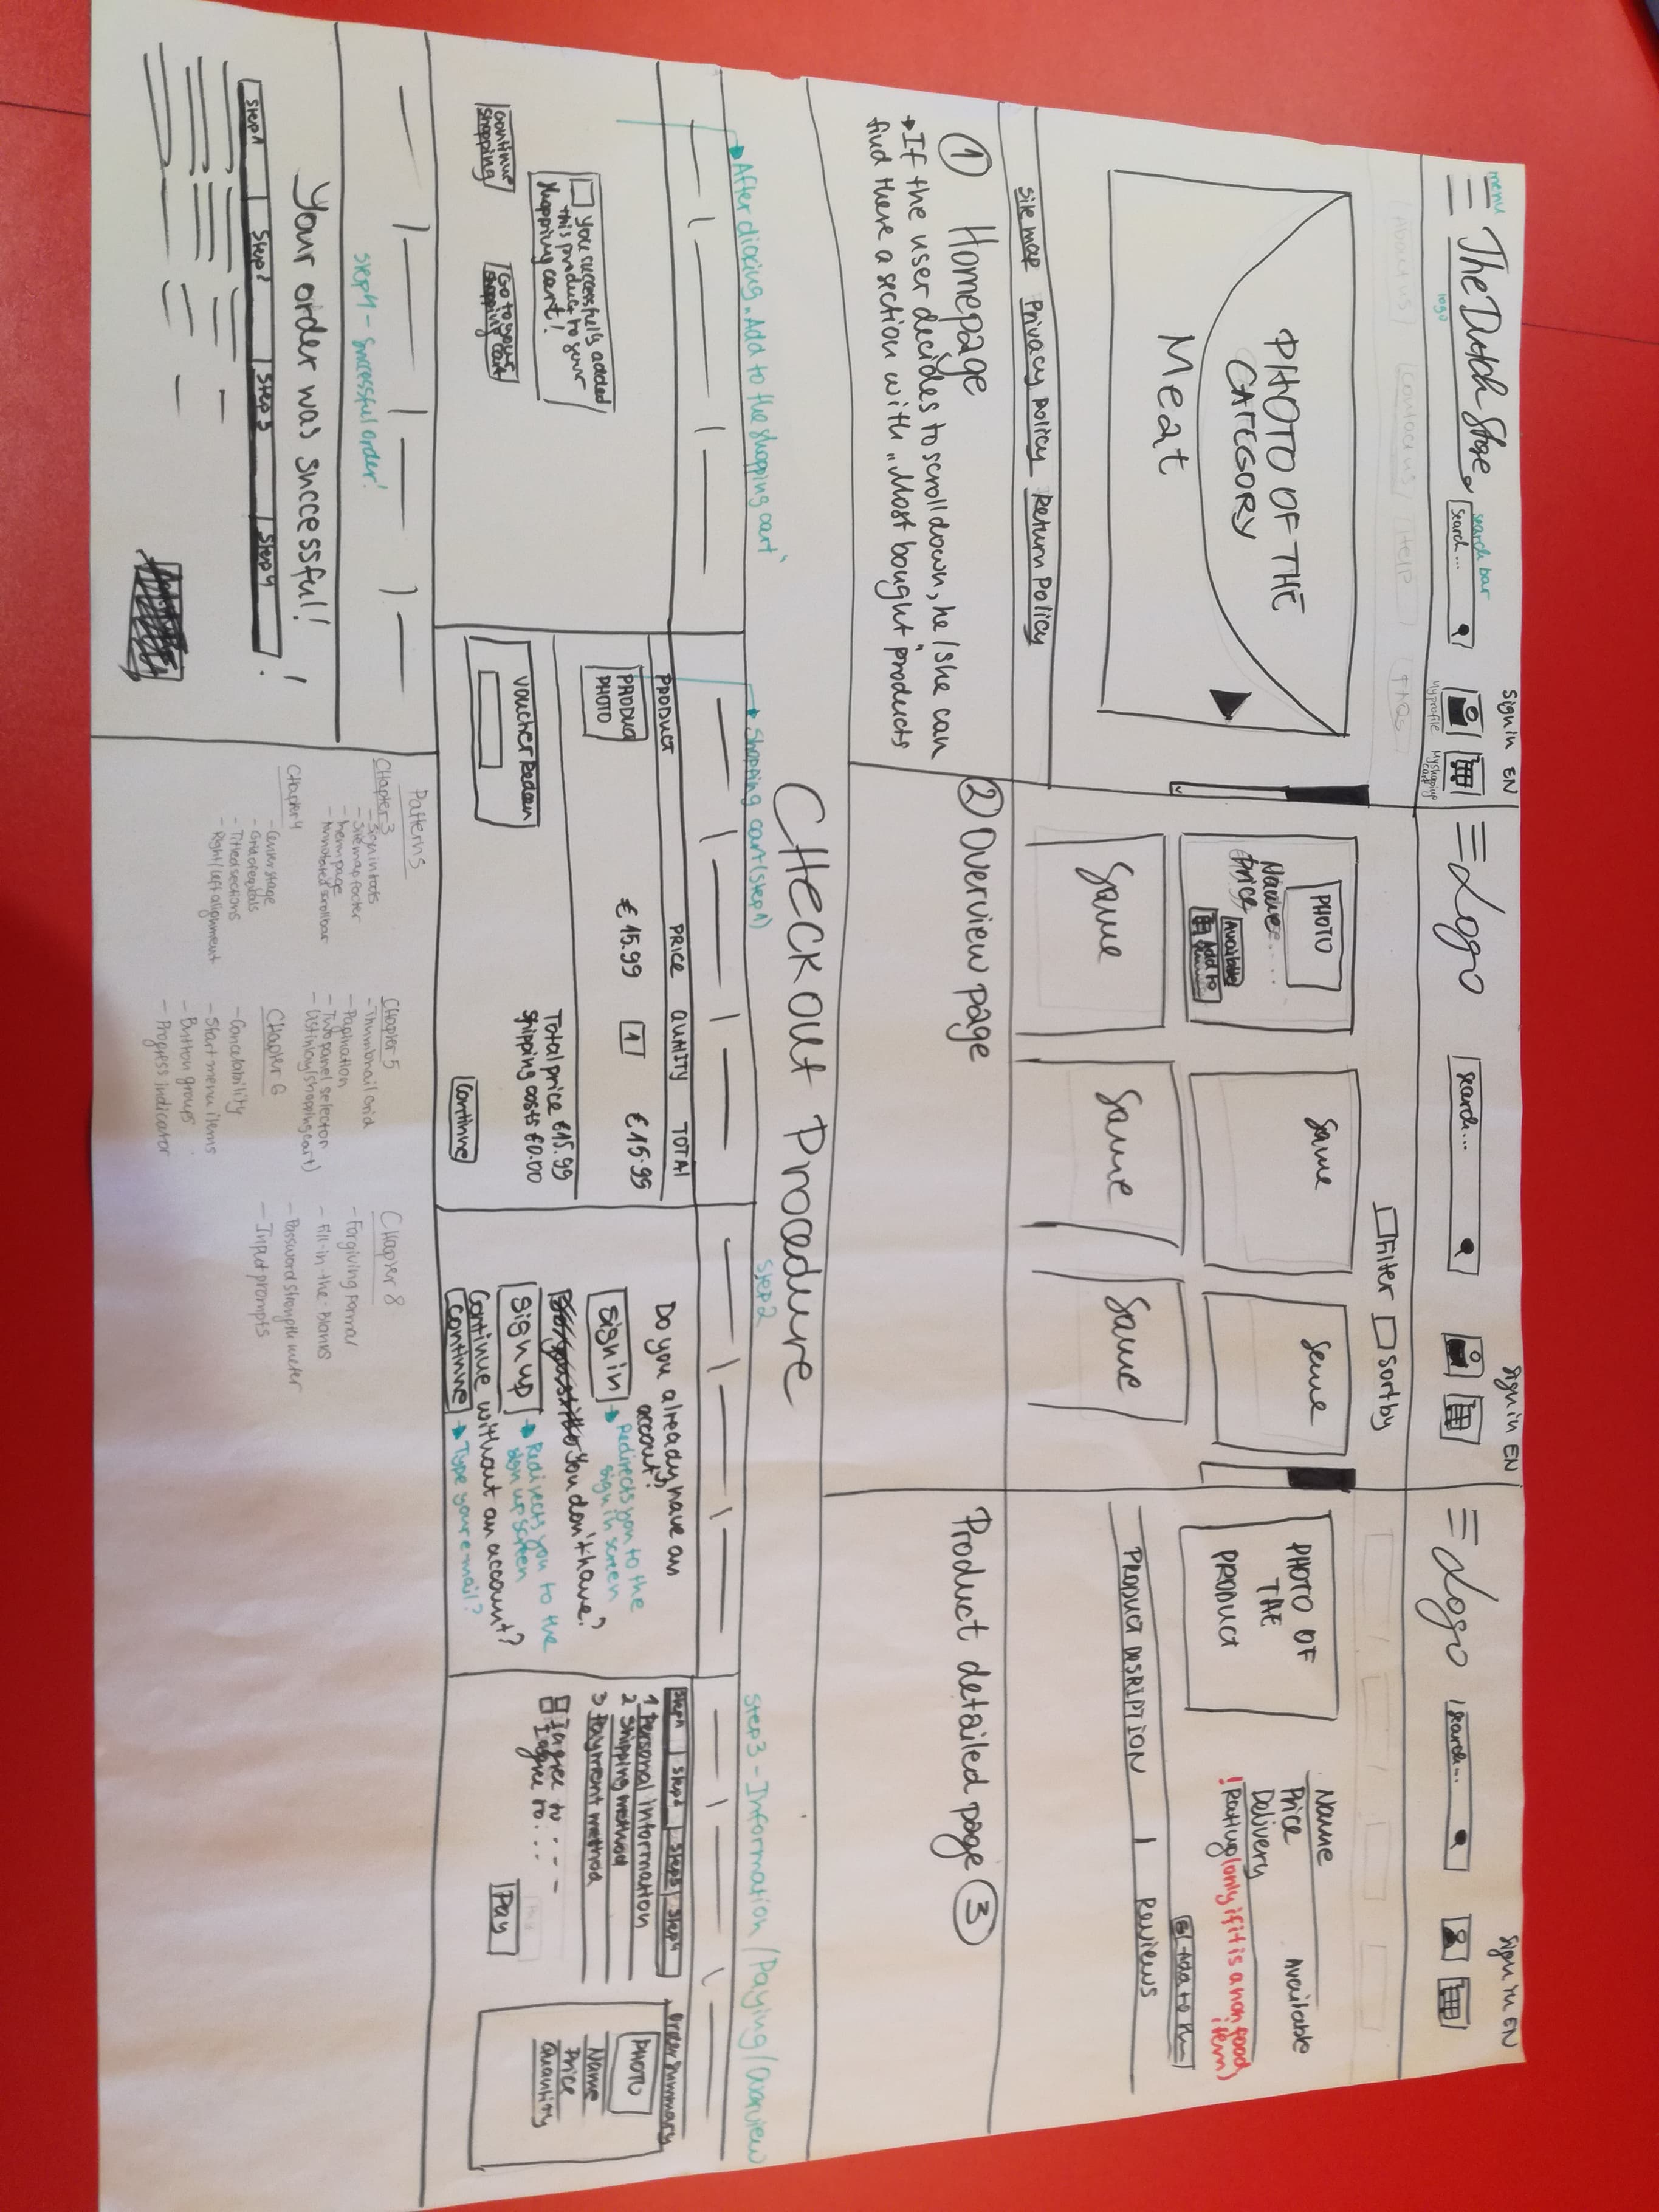 menu
The Dutch Store
logo
search bar
Search ...
Sign in EN
My profile
My shopping cart
About us
Contact us
Help
FAQs
PHOTO OF THE
CATEGORY
Meat
Site map Privacy Policy Return Policy
1 Homepage
If the user decides to scroll down, he/she can
find there a section with „Most bought" products
Logo
Search...
Sign in EN
Filter Sort by
PHOTO
Name
Price
Available
Add to
Same
Same
Same
Same
Same
2 Overview page
Logo
Search...
Sign in EN
PHOTO OF
THE
PRODUCT
Name
Price Available
Delivery
! Rating (only if it is a non food
item)
Add to the
PRODUCT DESRIPTION | Reviews
Product detailed page 3
CHeckout Procedure
After clicking „Add to the shopping cart"
You successfully added
this product to your
shopping cart!
Continue
shopping
Go to your
shopping cart
Shopping cart (step 1)
PRODUCT PRICE QUNITY TOTAL
PRODUCT
PHOTO
€15.99 1 €15.99
Total price €15.99
Shipping costs €0.00
Voucher Redeen
Continue
Step 2
Do you already have an
accout?
Sign in
Redirects you to the
sign in screen
You don't have?
Sign up
Redirects you to the
sign up screen
Continue without an account?
Continue
Type your e-mail?
Step 3 - Information / Paying / Overview
Step 1 Step 2 Step 3 Step 4
1 Personal information
2 Shipping method
3 Payment method
I agree to - - -
I agree to. . .
Pay
Order Summary
PHOTO
Name
Price
Quantity
Step 4 - Successful order!
Your order was successful!
!
Step 1 Step 2 Step 3 Step 4
Patterns
CHapter 3
- Sign in tools
- Sitemap footer
- Menu page
- Annotated scrollbar
CHapter 4
- Center stage
- Grid of equals
- Titled sections
- Right/left alignment
CHapter 5
- Thumbnail Grid
- Pagination
- Two panel selector
- List inlay (shopping cart)
CHapter 6
- Cancelability
- Start menu items
- Button groups
- Progress indicator
CHapter 8
- Forgiving Format
- Fill-in-the-Blanks
- Password strength meter
- Input prompts